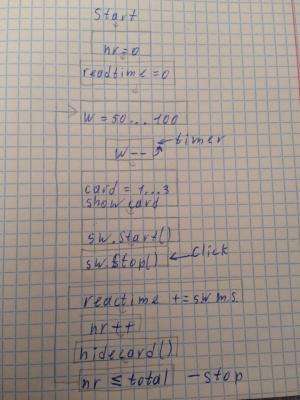 Start
nr=0
readtime=0
W=50...100
timer
W--
card = 1...3
show card
sw.Start()
sw.Stop()
Click
reactime += sw ms
nr++
hidecard()
nr ≤ total
-Stop